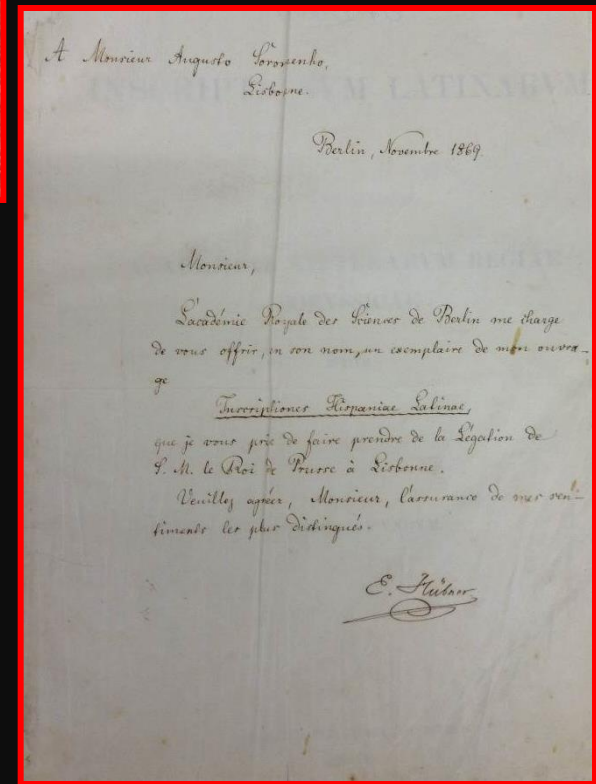 A Monsieur Augusto Soromenho,
Lisbonne.
Berlin, Novembre 1869.
Monsieur,
L'académie Royale des Sciences de Berlin me charge
de vous offrir, en son nom, un exemplaire de mon ouvra-
ge
Inscriptiones Hispaniae Latinae,
que je vous prie de faire prendre de la Légation de
S. M. le Roi de Prusse à Lisbonne.
Veuillez agréer, Monsieur, l'assurance de mes sen-
timents les plus distingués.
E. Hübner